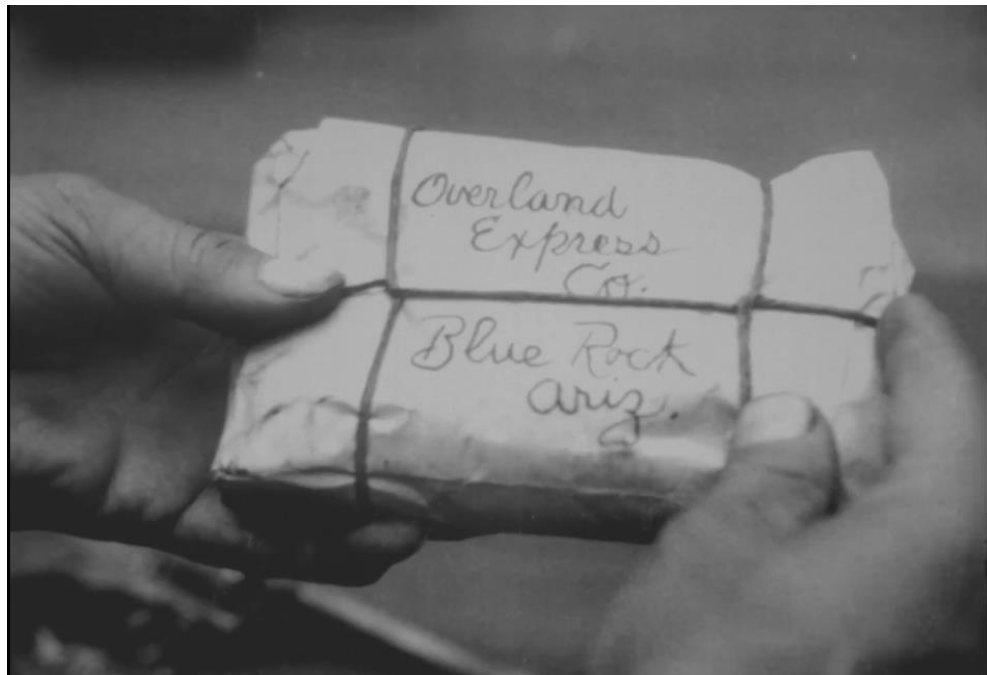 Overland
Express
Co.
Blue Rock
Ariz.